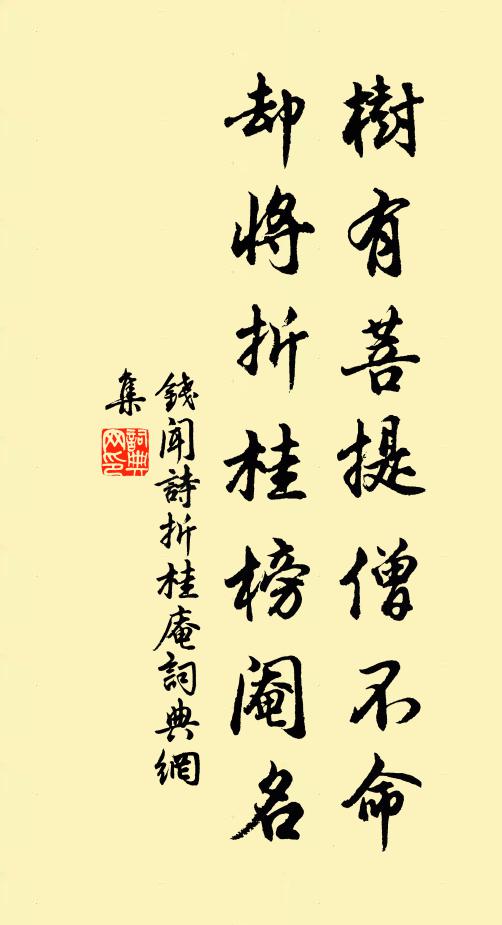 樹有菩提僧不命
却將折桂榜闍名
錢聞詩折桂庵詞典網
集
詞典
网印